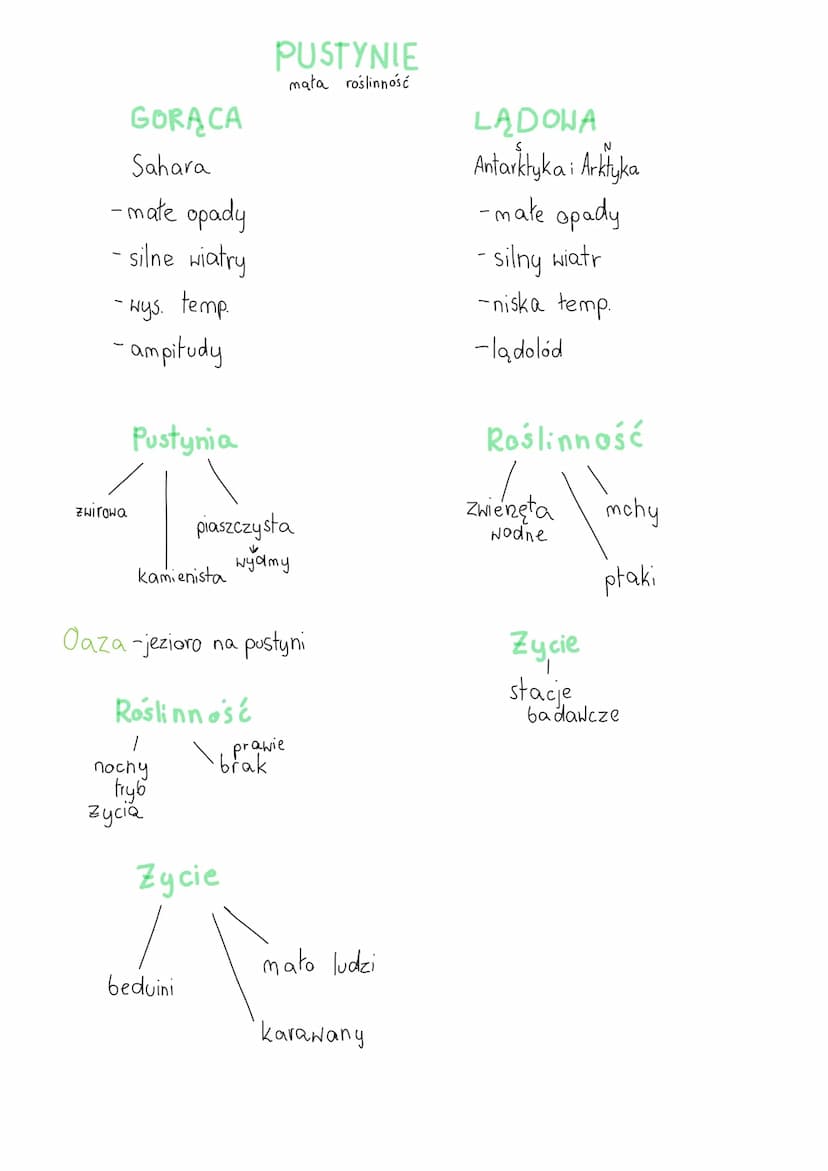 PUSTYNIE
mała roślinność
GORĄCA
Sahara
- małe opady
- silne wiatry
- wys. temp.
- ampitudy
Pustynia
żwirowa
piaszczysta
wydmy
kamienista
Oaza - jezioro na pustyni
Roślinność
nochy
tryb
życia
prawie
brak
Życie
beduini
mało ludzi
karawany
LĄDOWA
S N
Antarktyka i Arktyka
- małe opady
- silny wiatr
- niska temp.
- lądolód
Roślinność
zwierzęta
wodne
mchy
ptaki
Życie
stacje
badawcze